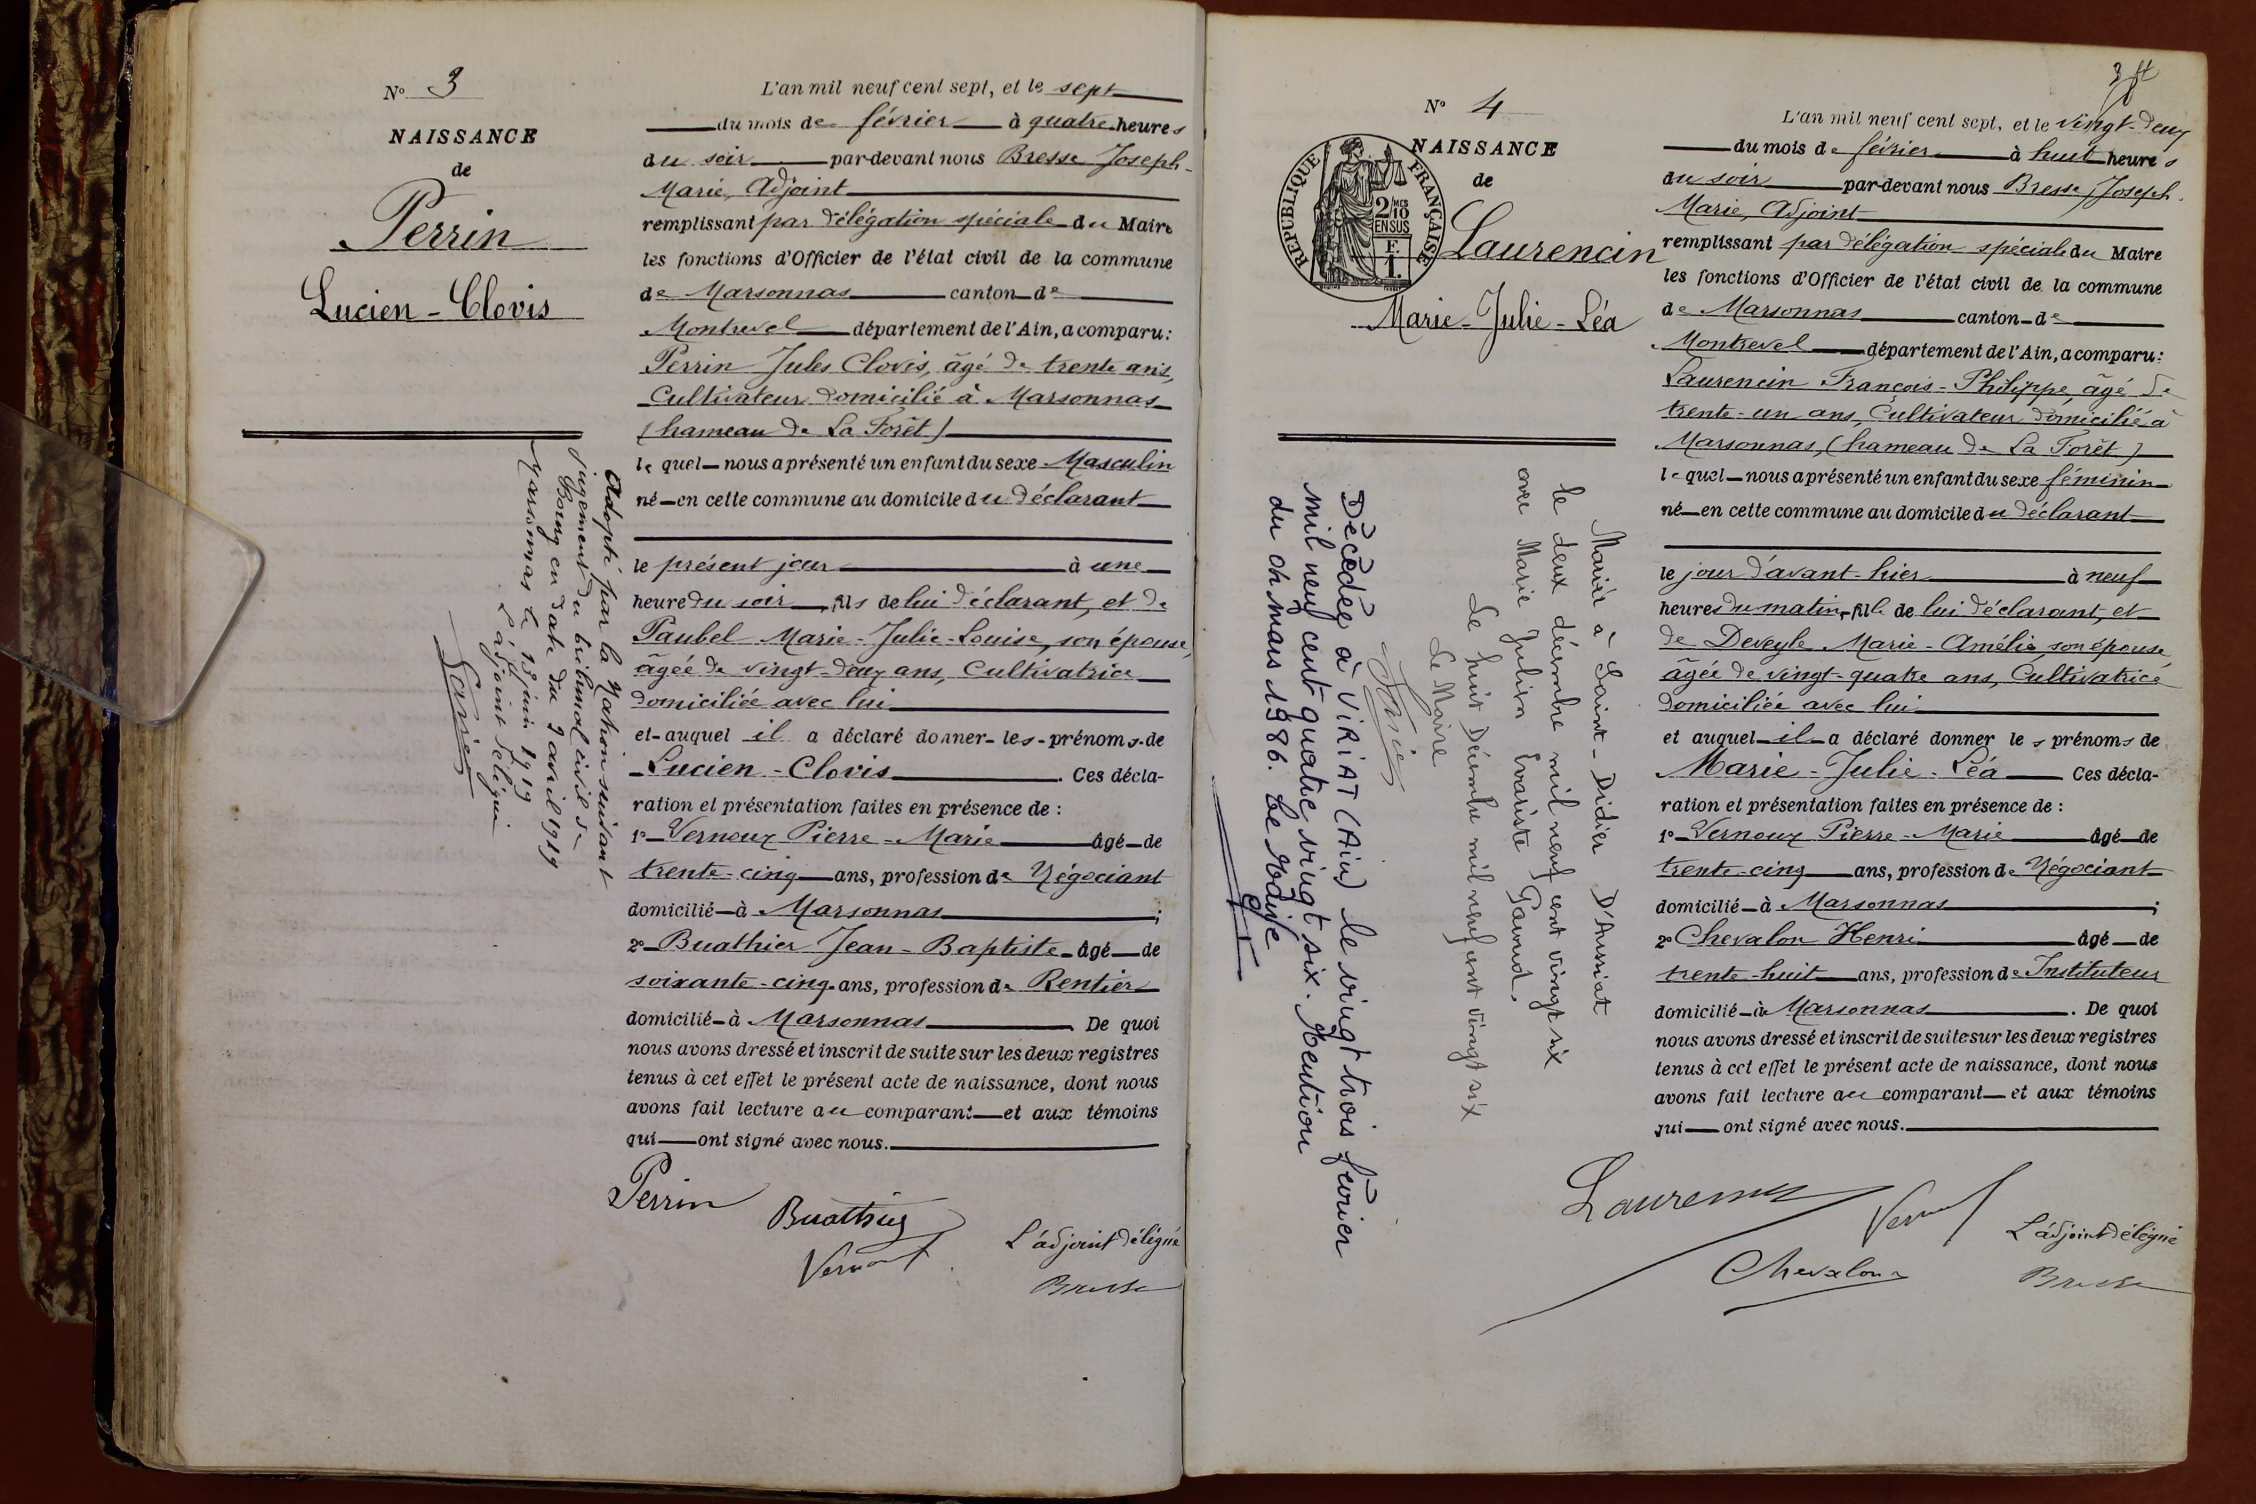 N° 3
NAISSANCE
de
Perrin
Lucien-Clovis
Adopté par la Nation suivant
jugement du tribunal civil de
Bourg en date du 9 avril 1919
Marsonnas le 13 juin 1919
L'adjoint délégué
L'an mil neuf cent sept, et le sept
du mois de février à quatre heures
du soir par-devant nous Bresse Joseph-
Marie, Adjoint
remplissant par délégation spéciale du Maire
les fonctions d'Officier de l'état civil de la commune
de Marsonnas canton de
Montrevel département de l'Ain, a comparu:
Perrin Jules Clovis, âgé de trente ans,
Cultivateur domicilié à Marsonnas
(hameau de La Forêt)
lequel nous a présenté un enfant du sexe Masculin
né en cette commune au domicile du déclarant
le présent jour à une
heure du soir, fils de lui déclarant, et de
Paubel Marie-Julie-Louise, son épouse,
âgée de vingt-deux ans, Cultivatrice
domiciliée avec lui
et auquel il a déclaré donner les prénoms de
Lucien-Clovis. Ces décla-
ration et présentation faites en présence de :
1° Vernoux Pierre-Marie âgé de
trente-cinq ans, profession de Négociant
domicilié à Marsonnas ;
2° Buathier Jean-Baptiste âgé de
soixante-cinq ans, profession de Rentier
domicilié à Marsonnas. De quoi
nous avons dressé et inscrit de suite sur les deux registres
tenus à cet effet le présent acte de naissance, dont nous
avons fait lecture au comparant et aux témoins
qui ont signé avec nous.
Perrin Buathier
Vernoux
L'adjoint délégué
Bresse
N° 4
NAISSANCE
de
RÉPUBLIQUE FRANÇAISE
2/10
EN SUS
Laurencin
Marie-Julie-Léa
Mariée à Saint-Didier D'Aussiat
le deux décembre mil neuf cent vingt six
avec Marie Julien Evariste Gavand.
Le huit Décembre mil neuf cent vingt six
Le Maire
Décèdée à VIRIAT (Ain) le vingt trois février
mil neuf cent quatre vingt six. Mention
du 04 mars 1986. Le Maire
L'an mil neuf cent sept, et le vingt-deux
du mois de février à huit heures
du soir par-devant nous Bresse Joseph
Marie, Adjoint
remplissant par délégation spéciale du Maire
les fonctions d'Officier de l'état civil de la commune
de Marsonnas canton de
Montrevel département de l'Ain, a comparu:
Laurencin François-Philippe, âgé de
trente-un ans, Cultivateur domicilié à
Marsonnas, (hameau de La Forêt)
lequel nous a présenté un enfant du sexe féminin
né en cette commune au domicile du déclarant
le jour d'avant-hier à neuf
heures du matin, fille de lui déclarant, et
de Deveyle Marie-Amélie son épouse
âgée de vingt-quatre ans, Cultivatrice
domiciliée avec lui
et auquel il a déclaré donner les prénoms de
Marie-Julie-Léa Ces décla-
ration et présentation faites en présence de :
1° Vernoux Pierre-Marie âgé de
trente-cinq ans, profession de Négociant
domicilié à Marsonnas ;
2° Chevalon Henri âgé de
trente-huit ans, profession de Instituteur
domicilié à Marsonnas. De quoi
nous avons dressé et inscrit de suite sur les deux registres
tenus à cet effet le présent acte de naissance, dont nous
avons fait lecture au comparant et aux témoins
qui ont signé avec nous.
Laurencin Vernoux
Chevalon
L'adjoint délégué
Bresse